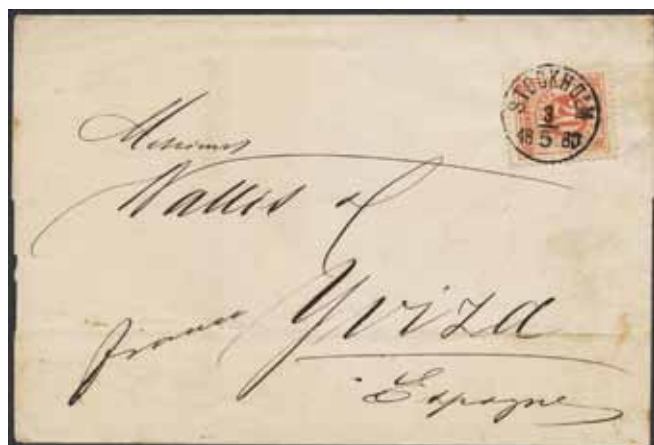 STOCKHOLM
3
18 5 80
Messieurs
Wallis &
franco Yviza
Espagne